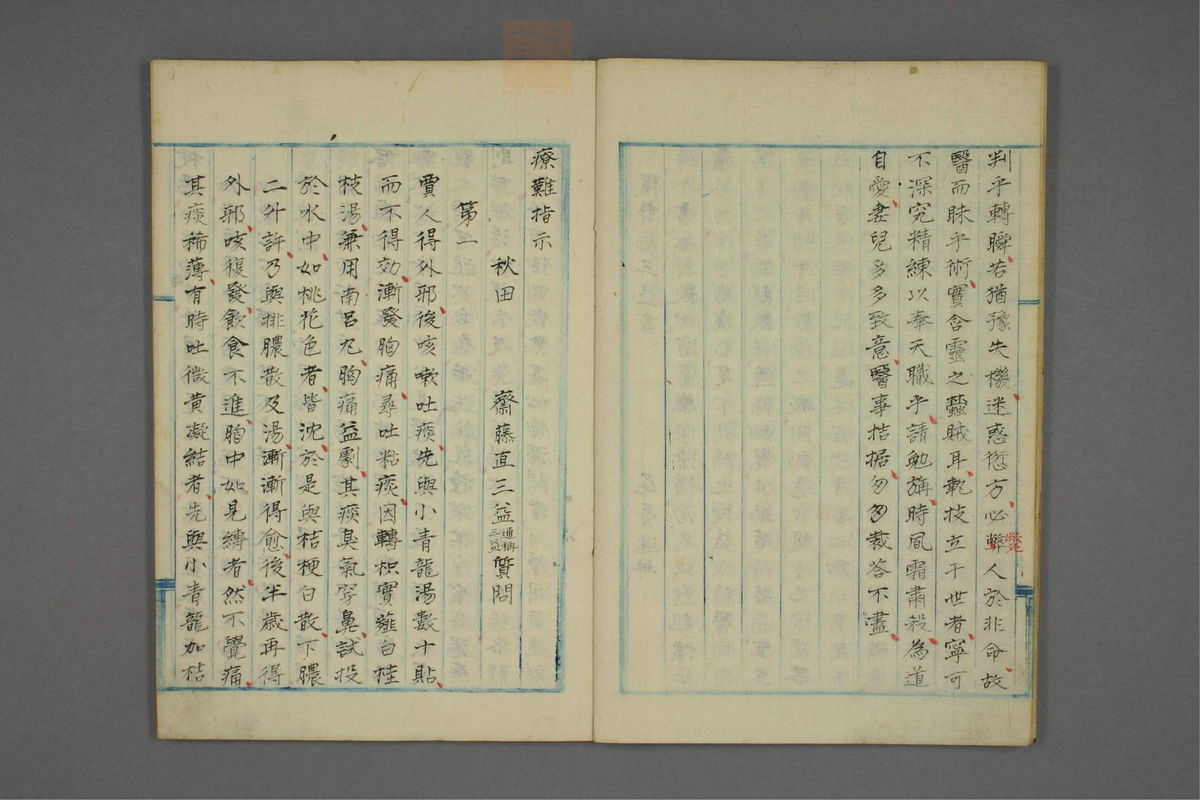 判乎轉瞬若猶豫失機迷惑愆方必弊人於非命故
斃
醫而昧乎術實含靈之蠧賊耳執技立于世者寧可
不深究精練以奉天職乎請勉旃時風霜肅殺為道
自愛妻兒多多致意醫事拮据匆匆裁答不盡
療難指示
秋田 齋藤直三益通稱三益質問
第一
賈人得外邪後咳嗽吐痰先與小青龍湯數十貼
而不得効漸發胸痛尋吐粘痰因轉枳實薤白桂
枝湯兼用南呂丸胸痛益劇其痰臭氣穿鼻試投
於水中如桃花色者皆沈於是與桔梗白散下膿
二外許乃與排膿散及湯漸漸得愈後半歲再得
外邪咳復發飲食不進胸中如見縛者然不覺痛
其痰稀薄有時吐微黄凝結者先與小青龍加桔